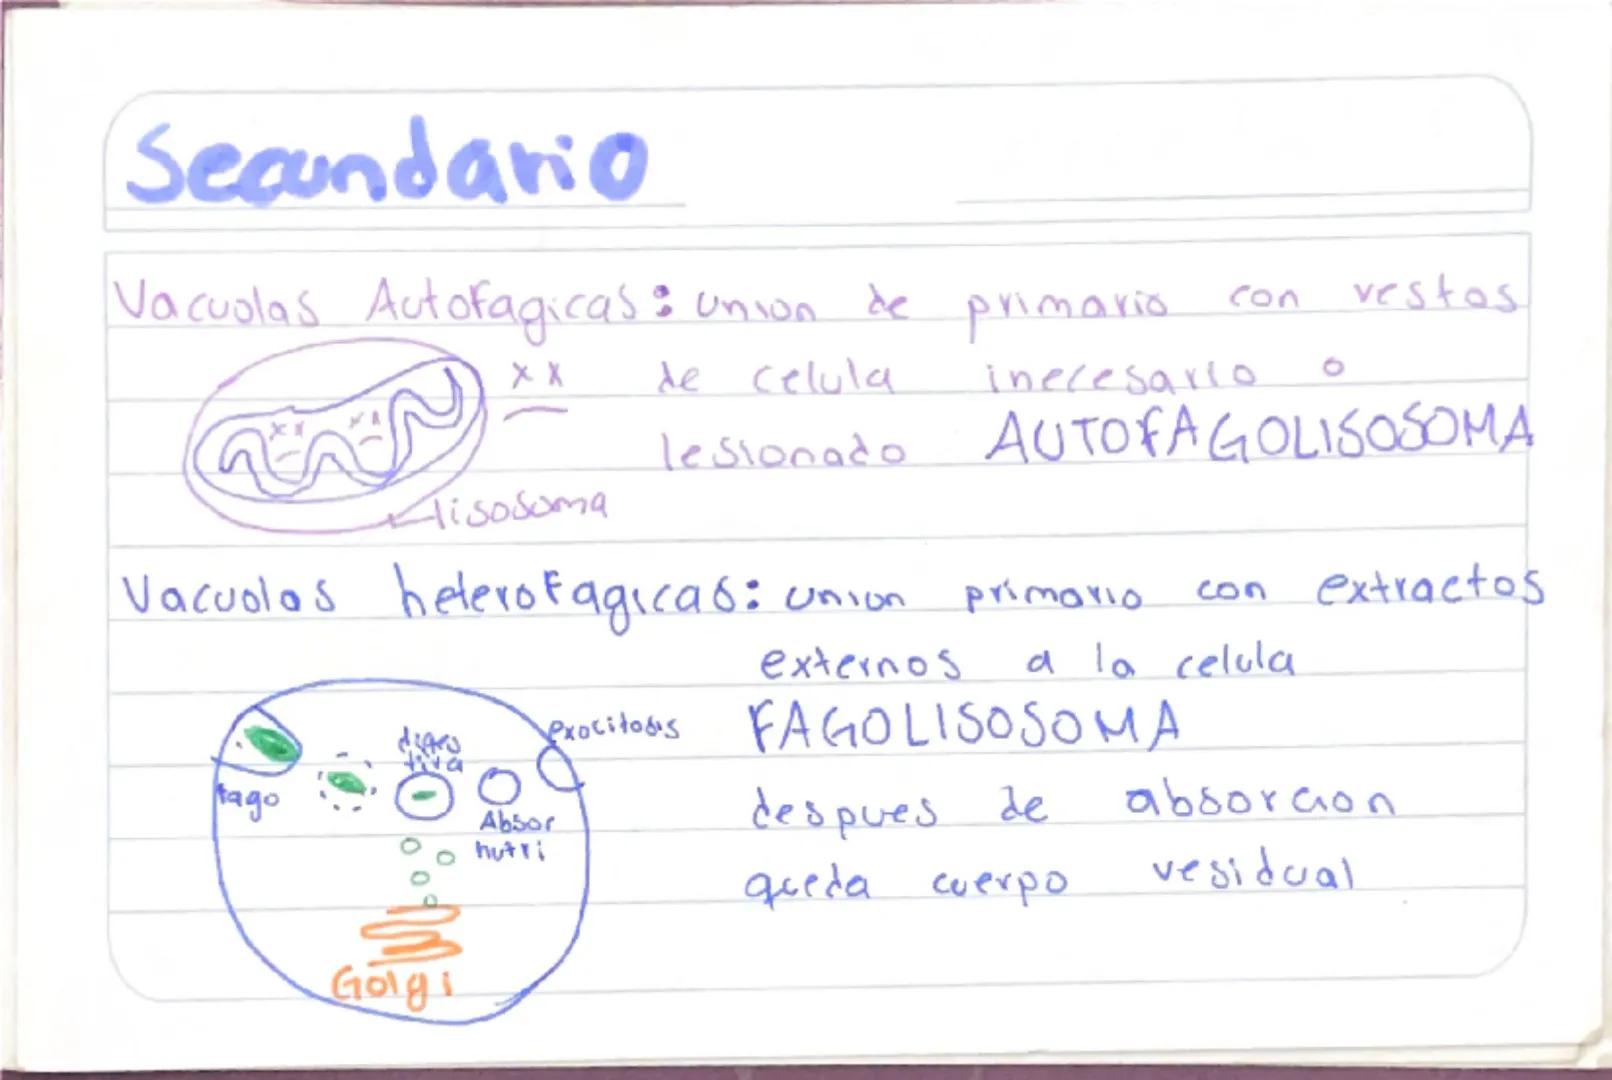 Secundario
Vacuolas Autofagicas: union de primario con restos
xx de celula inecesario o
xx xx
lesionado AUTOFAGOLISOSOMA
lisosoma
Vacuolas heterofagicas: union primario con extractos
externos a la celula
exocitosis FAGOLISOSOMA
diges
tiva
fago
Absor
nutri
despues de absorcion
queda cuerpo residual
Golgi